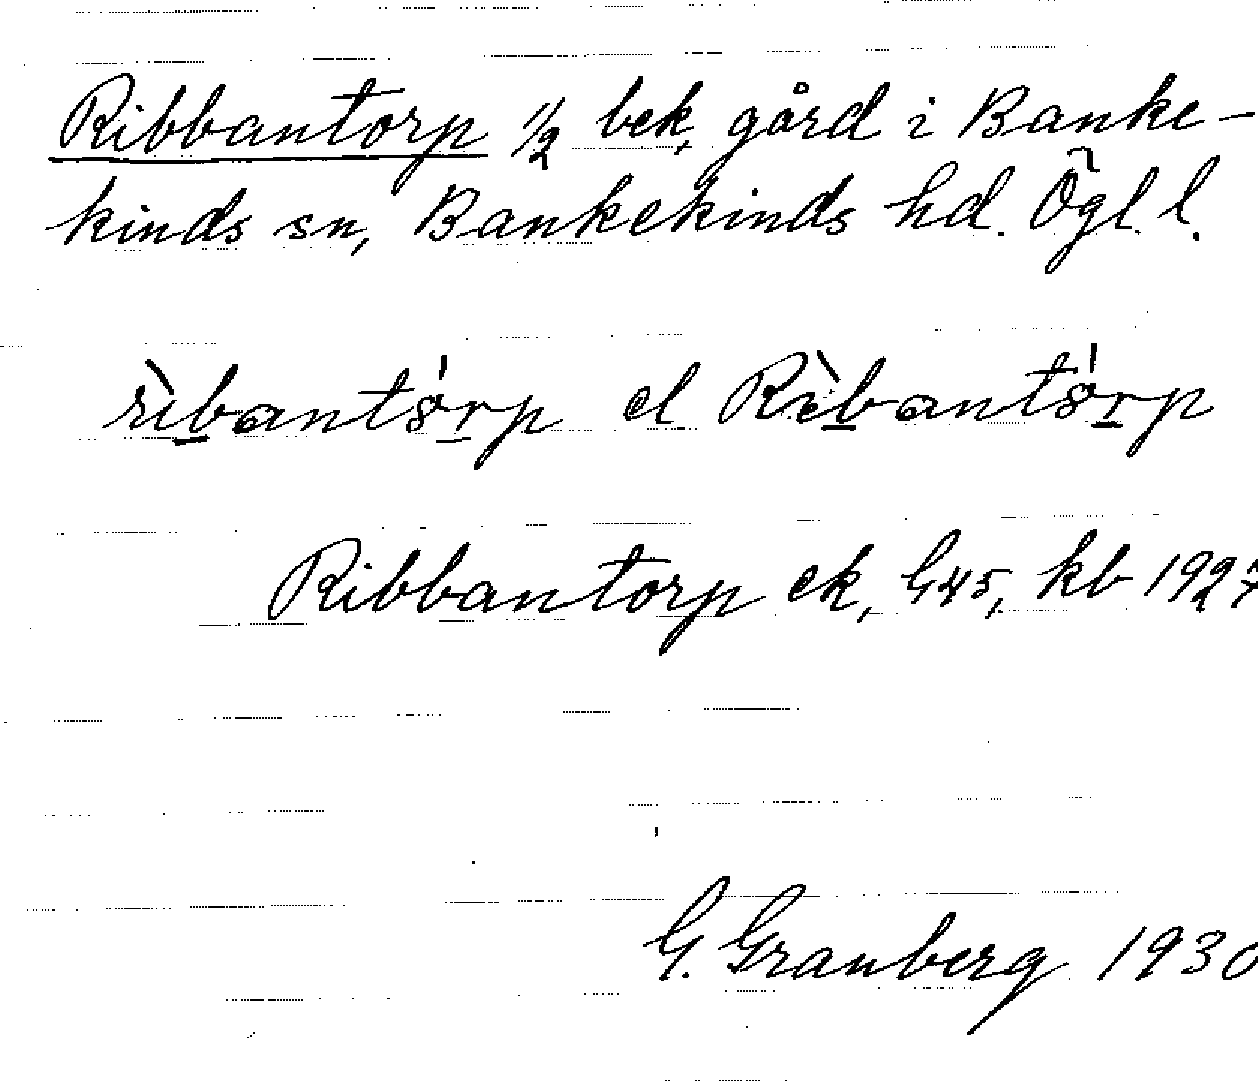 Ribbantorp 1/2 bek, gård i Banke-
kinds sn, Bankekinds hd. Ögl l.
rìbantórp el Rìbantórp
Ribbantorp ek, G45, kb 1927
G. Granberg 1930